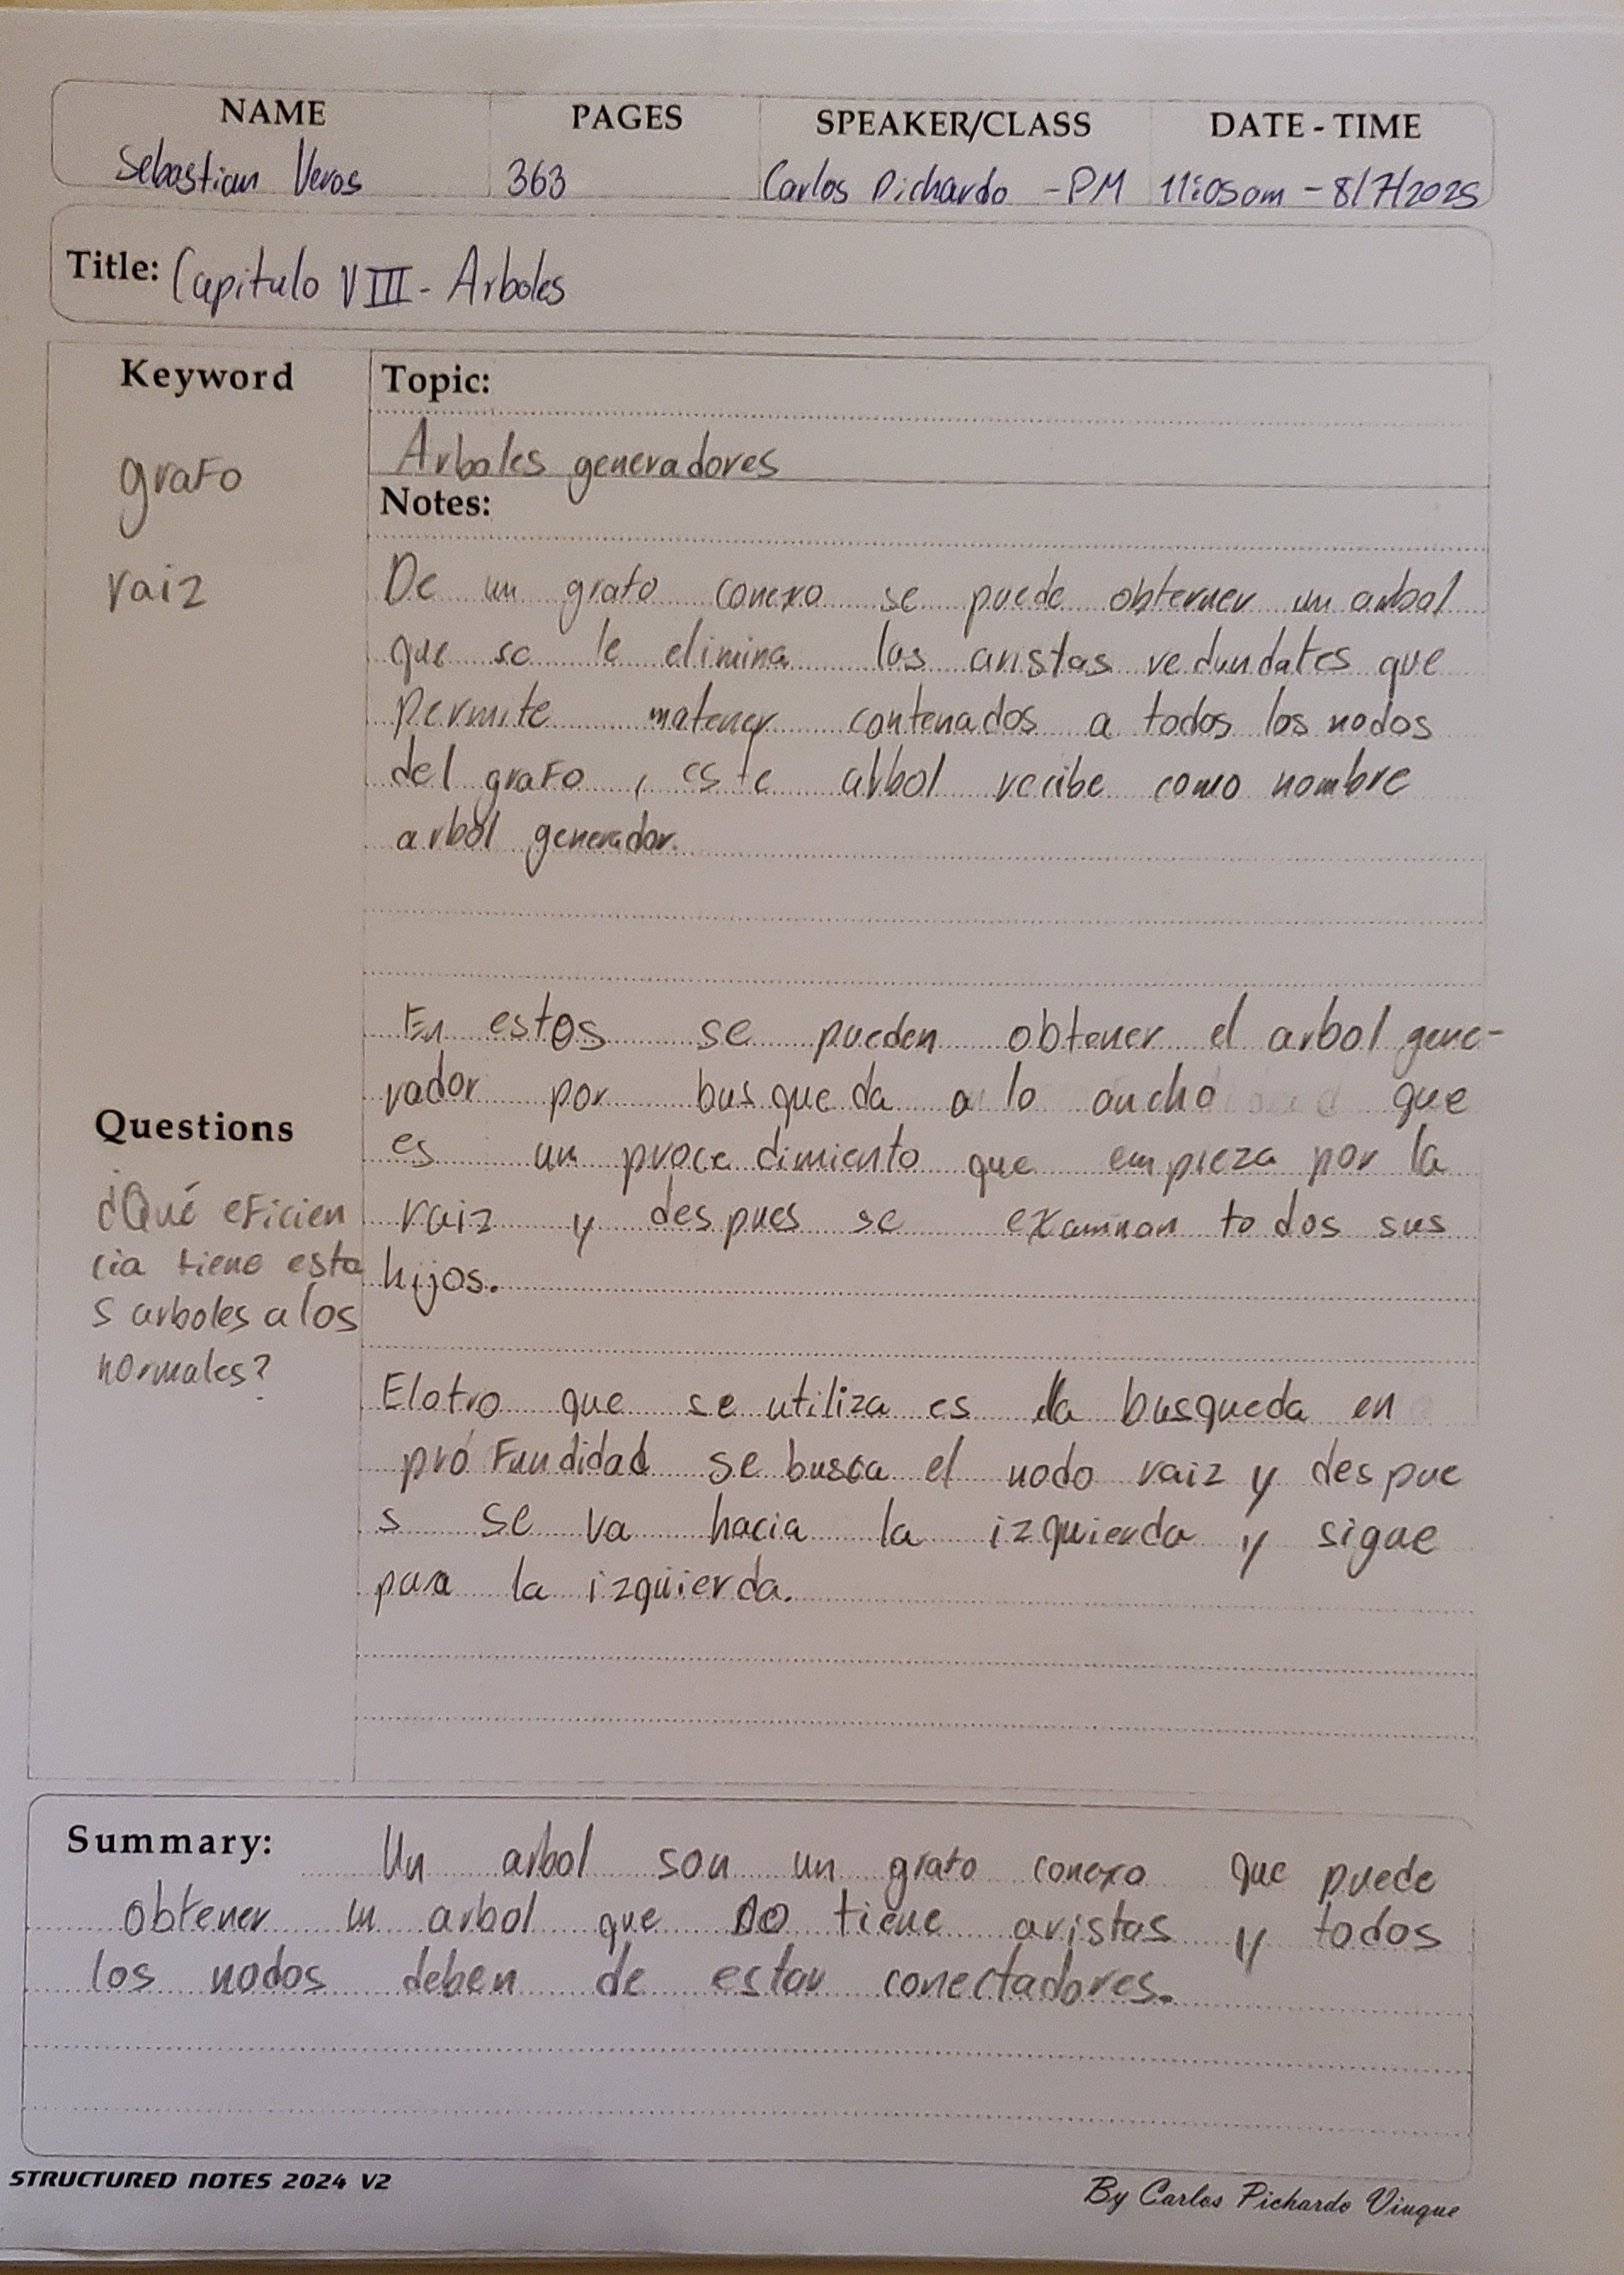 NAME PAGES SPEAKER/CLASS DATE - TIME
Sebastian Veras 363 Carlos Pichardo - PM 11:05am - 8/7/2025
Title: Capitulo VIII - Arboles
Keyword
grafo
raiz
Topic:
Arboles generadores
Notes:
De un grafo conexo se puede obterner un arbol
que se le elimina las aristas redundates que
permite matener contenados a todos los nodos
del grafo, este arbol recibe como nombre
arbol generador.
En estos se pueden obtener el arbol gene-
rador por busqueda a lo ancho que
es un procedimiento que empieza por la
raiz y despues se examinan todos sus
hijos.
Questions
¿Qué eficien
cia tiene esto
s arboles a los
normales?
El otro que se utiliza es la busqueda en
profundidad se busca el nodo raiz y despue
s se va hacia la izquierda y sigue
para la izquierda.
Summary: Un arbol son un grafo conexo que puede
obtener un arbol que no tiene aristas y todos
los nodos deben de estar conectadores.
STRUCTURED NOTES 2024 V2
By Carlos Pichardo Viuque